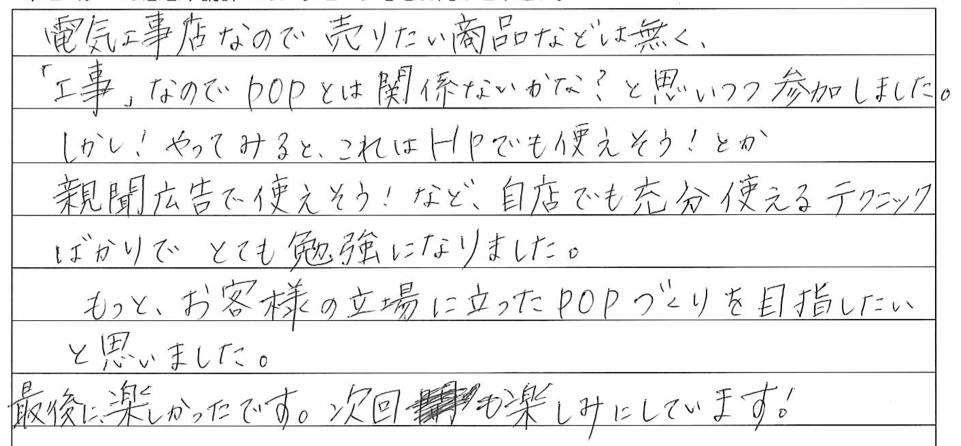 電気工事店なので売りたい商品などは無く、
「工事」なのでpopとは関係ないかな？と思いつつ参加しました。
しかし！やってみると、これはHPでも使えそう！とか
親聞広告で使えそう！など、自店でも充分使えるテクニック
ばかりでとても勉強になりました。
もっと、お客様の立場に立ったPOPづくりを目指したい
と思いました。
最後に、楽しかったです。次回も楽しみにしています！